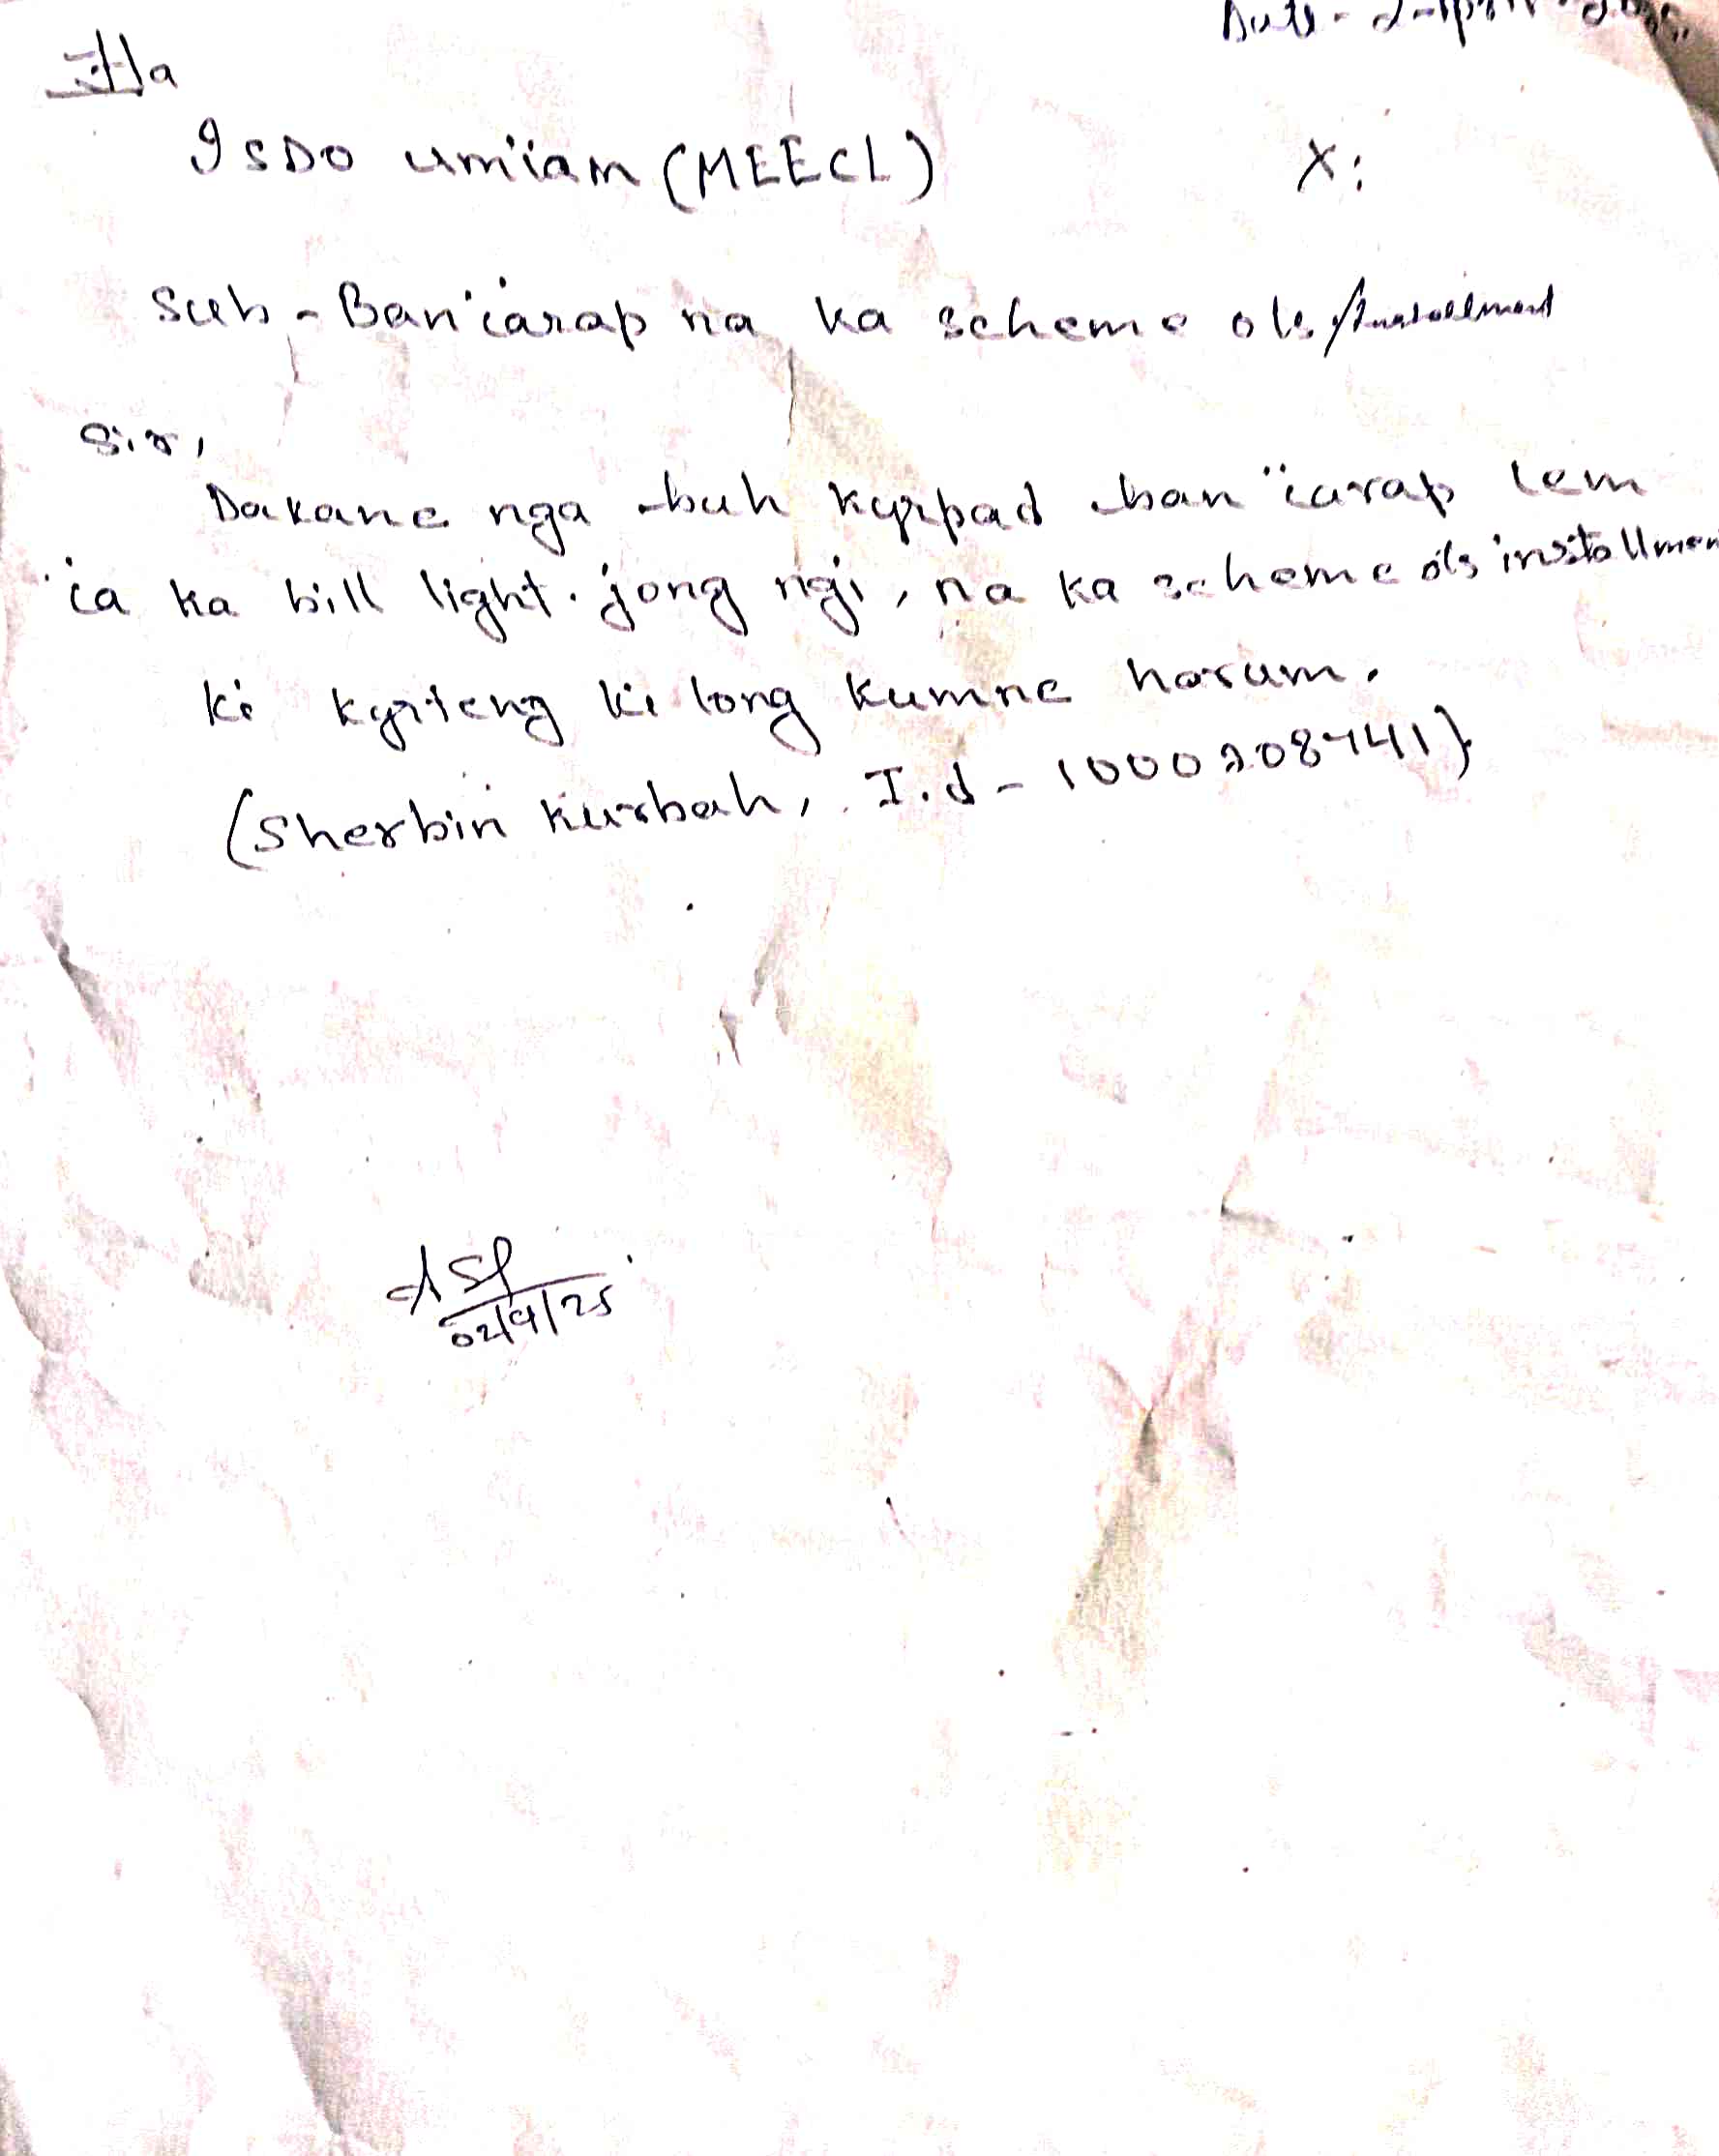 Ha
I SDO umiam (MEECL)
X:
Sub - Ban ïarap na ka scheme ots/Installment
Sir,
Dakane nga buh kyrpad ban ïarap lem
ïa ka bill light. jong ngi, na ka scheme ots installmen
ki kyrteng ki long kumne harum.
(Sherbin Kurbah, I.d -
02/4/25